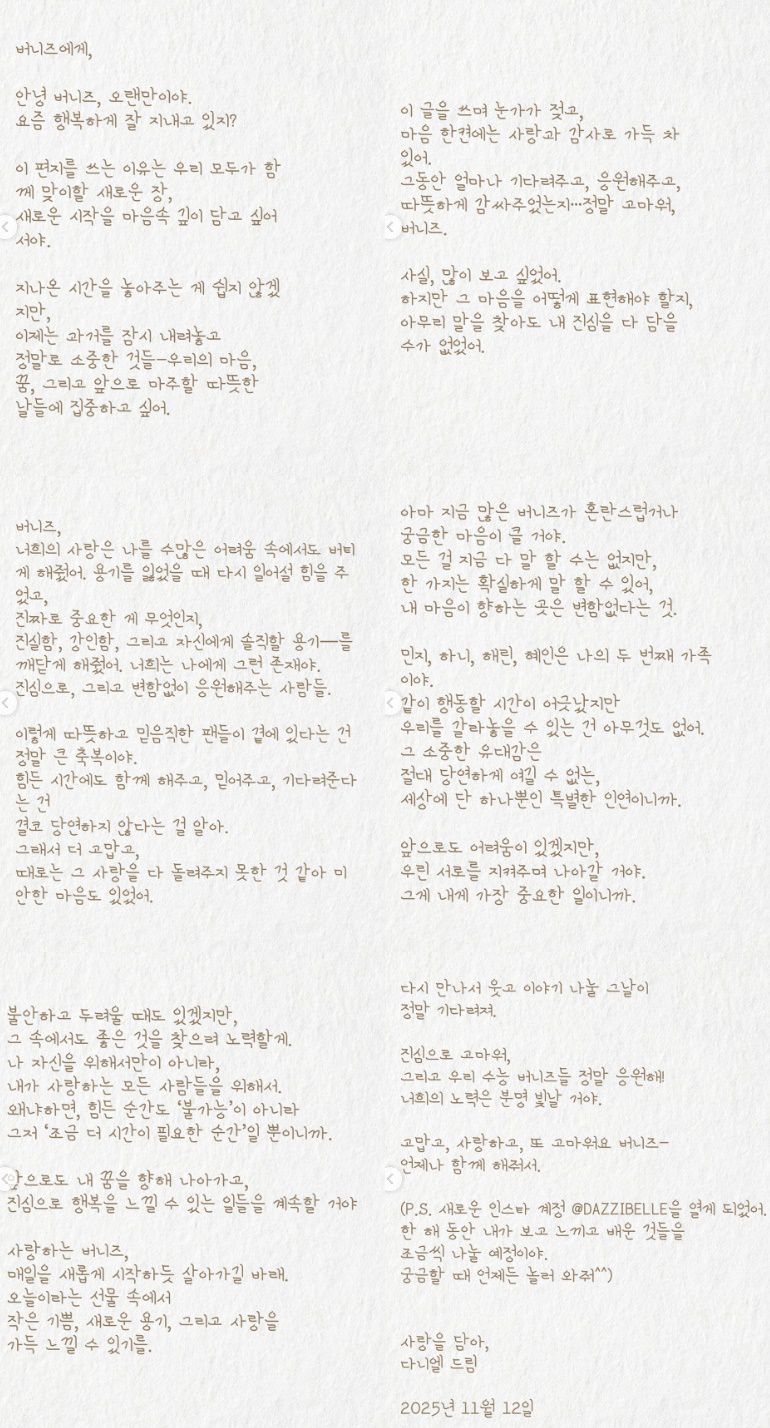 버니즈에게,
안녕 버니즈, 오랜만이야.
요즘 행복하게 잘 지내고 있지?
이 편지를 쓰는 이유는 우리 모두가 함
께 맞이할 새로운 장,
새로운 시작을 마음속 깊이 담고 싶어
서야.
지나온 시간을 놓아주는 게 쉽지 않겠
지만,
이제는 과거를 잠시 내려놓고
정말로 소중한 것들–우리의 마음,
꿈, 그리고 앞으로 마주할 따뜻한
날들에 집중하고 싶어.
이 글을 쓰며 눈가가 젖고,
마음 한켠에는 사랑과 감사로 가득 차
있어.
그동안 얼마나 기다려주고, 응원해주고,
따뜻하게 감싸주었는지…정말 고마워,
버니즈.
사실, 많이 보고 싶었어.
하지만 그 마음을 어떻게 표현해야 할지,
아무리 말을 찾아도 내 진심을 다 담을
수가 없었어.
버니즈,
너희의 사랑은 나를 수많은 어려움 속에서도 버티
게 해줬어. 용기를 잃었을 때 다시 일어설 힘을 주
었고,
진짜로 중요한 게 무엇인지,
진실함, 강인함, 그리고 자신에게 솔직할 용기—를
깨닫게 해줬어. 너희는 나에게 그런 존재야.
진심으로, 그리고 변함없이 응원해주는 사람들.
이렇게 따뜻하고 믿음직한 팬들이 곁에 있다는 건
정말 큰 축복이야.
힘든 시간에도 함께 해주고, 믿어주고, 기다려준다
는 건
결코 당연하지 않다는 걸 알아.
그래서 더 고맙고,
때로는 그 사랑을 다 돌려주지 못한 것 같아 미
안한 마음도 있었어.
아마 지금 많은 버니즈가 혼란스럽거나
궁금한 마음이 클 거야.
모든 걸 지금 다 말 할 수는 없지만,
한 가지는 확실하게 말 할 수 있어,
내 마음이 향하는 곳은 변함없다는 것.
민지, 하니, 해린, 혜인은 나의 두 번째 가족
이야.
같이 행동할 시간이 어긋났지만
우리를 갈라놓을 수 있는 건 아무것도 없어.
그 소중한 유대감은
절대 당연하게 여길 수 없는,
세상에 단 하나뿐인 특별한 인연이니까.
앞으로도 어려움이 있겠지만,
우린 서로를 지켜주며 나아갈 거야.
그게 내게 가장 중요한 일이니까.
불안하고 두려울 때도 있겠지만,
그 속에서도 좋은 것을 찾으려 노력할게.
나 자신을 위해서만이 아니라,
내가 사랑하는 모든 사람들을 위해서.
왜냐하면, 힘든 순간도 ‘불가능’이 아니라
그저 ‘조금 더 시간이 필요한 순간’일 뿐이니까.
앞으로도 내 꿈을 향해 나아가고,
진심으로 행복을 느낄 수 있는 일들을 계속할 거야
사랑하는 버니즈,
매일을 새롭게 시작하듯 살아가길 바래.
오늘이라는 선물 속에서
작은 기쁨, 새로운 용기, 그리고 사랑을
가득 느낄 수 있기를.
다시 만나서 웃고 이야기 나눌 그날이
정말 기다려져.
진심으로 고마워,
그리고 우리 수능 버니즈들 정말 응원해!
너희의 노력은 분명 빛날 거야.
고맙고, 사랑하고, 또 고마워요 버니즈–
언제나 함께 해줘서.
(P.S. 새로운 인스타 계정 @DAZZIBELLE을 열게 되었어.
한 해 동안 내가 보고 느끼고 배운 것들을
조금씩 나눌 예정이야.
궁금할 때 언제든 놀러 와줘^^)
사랑을 담아,
다니엘 드림
2025년 11월 12일